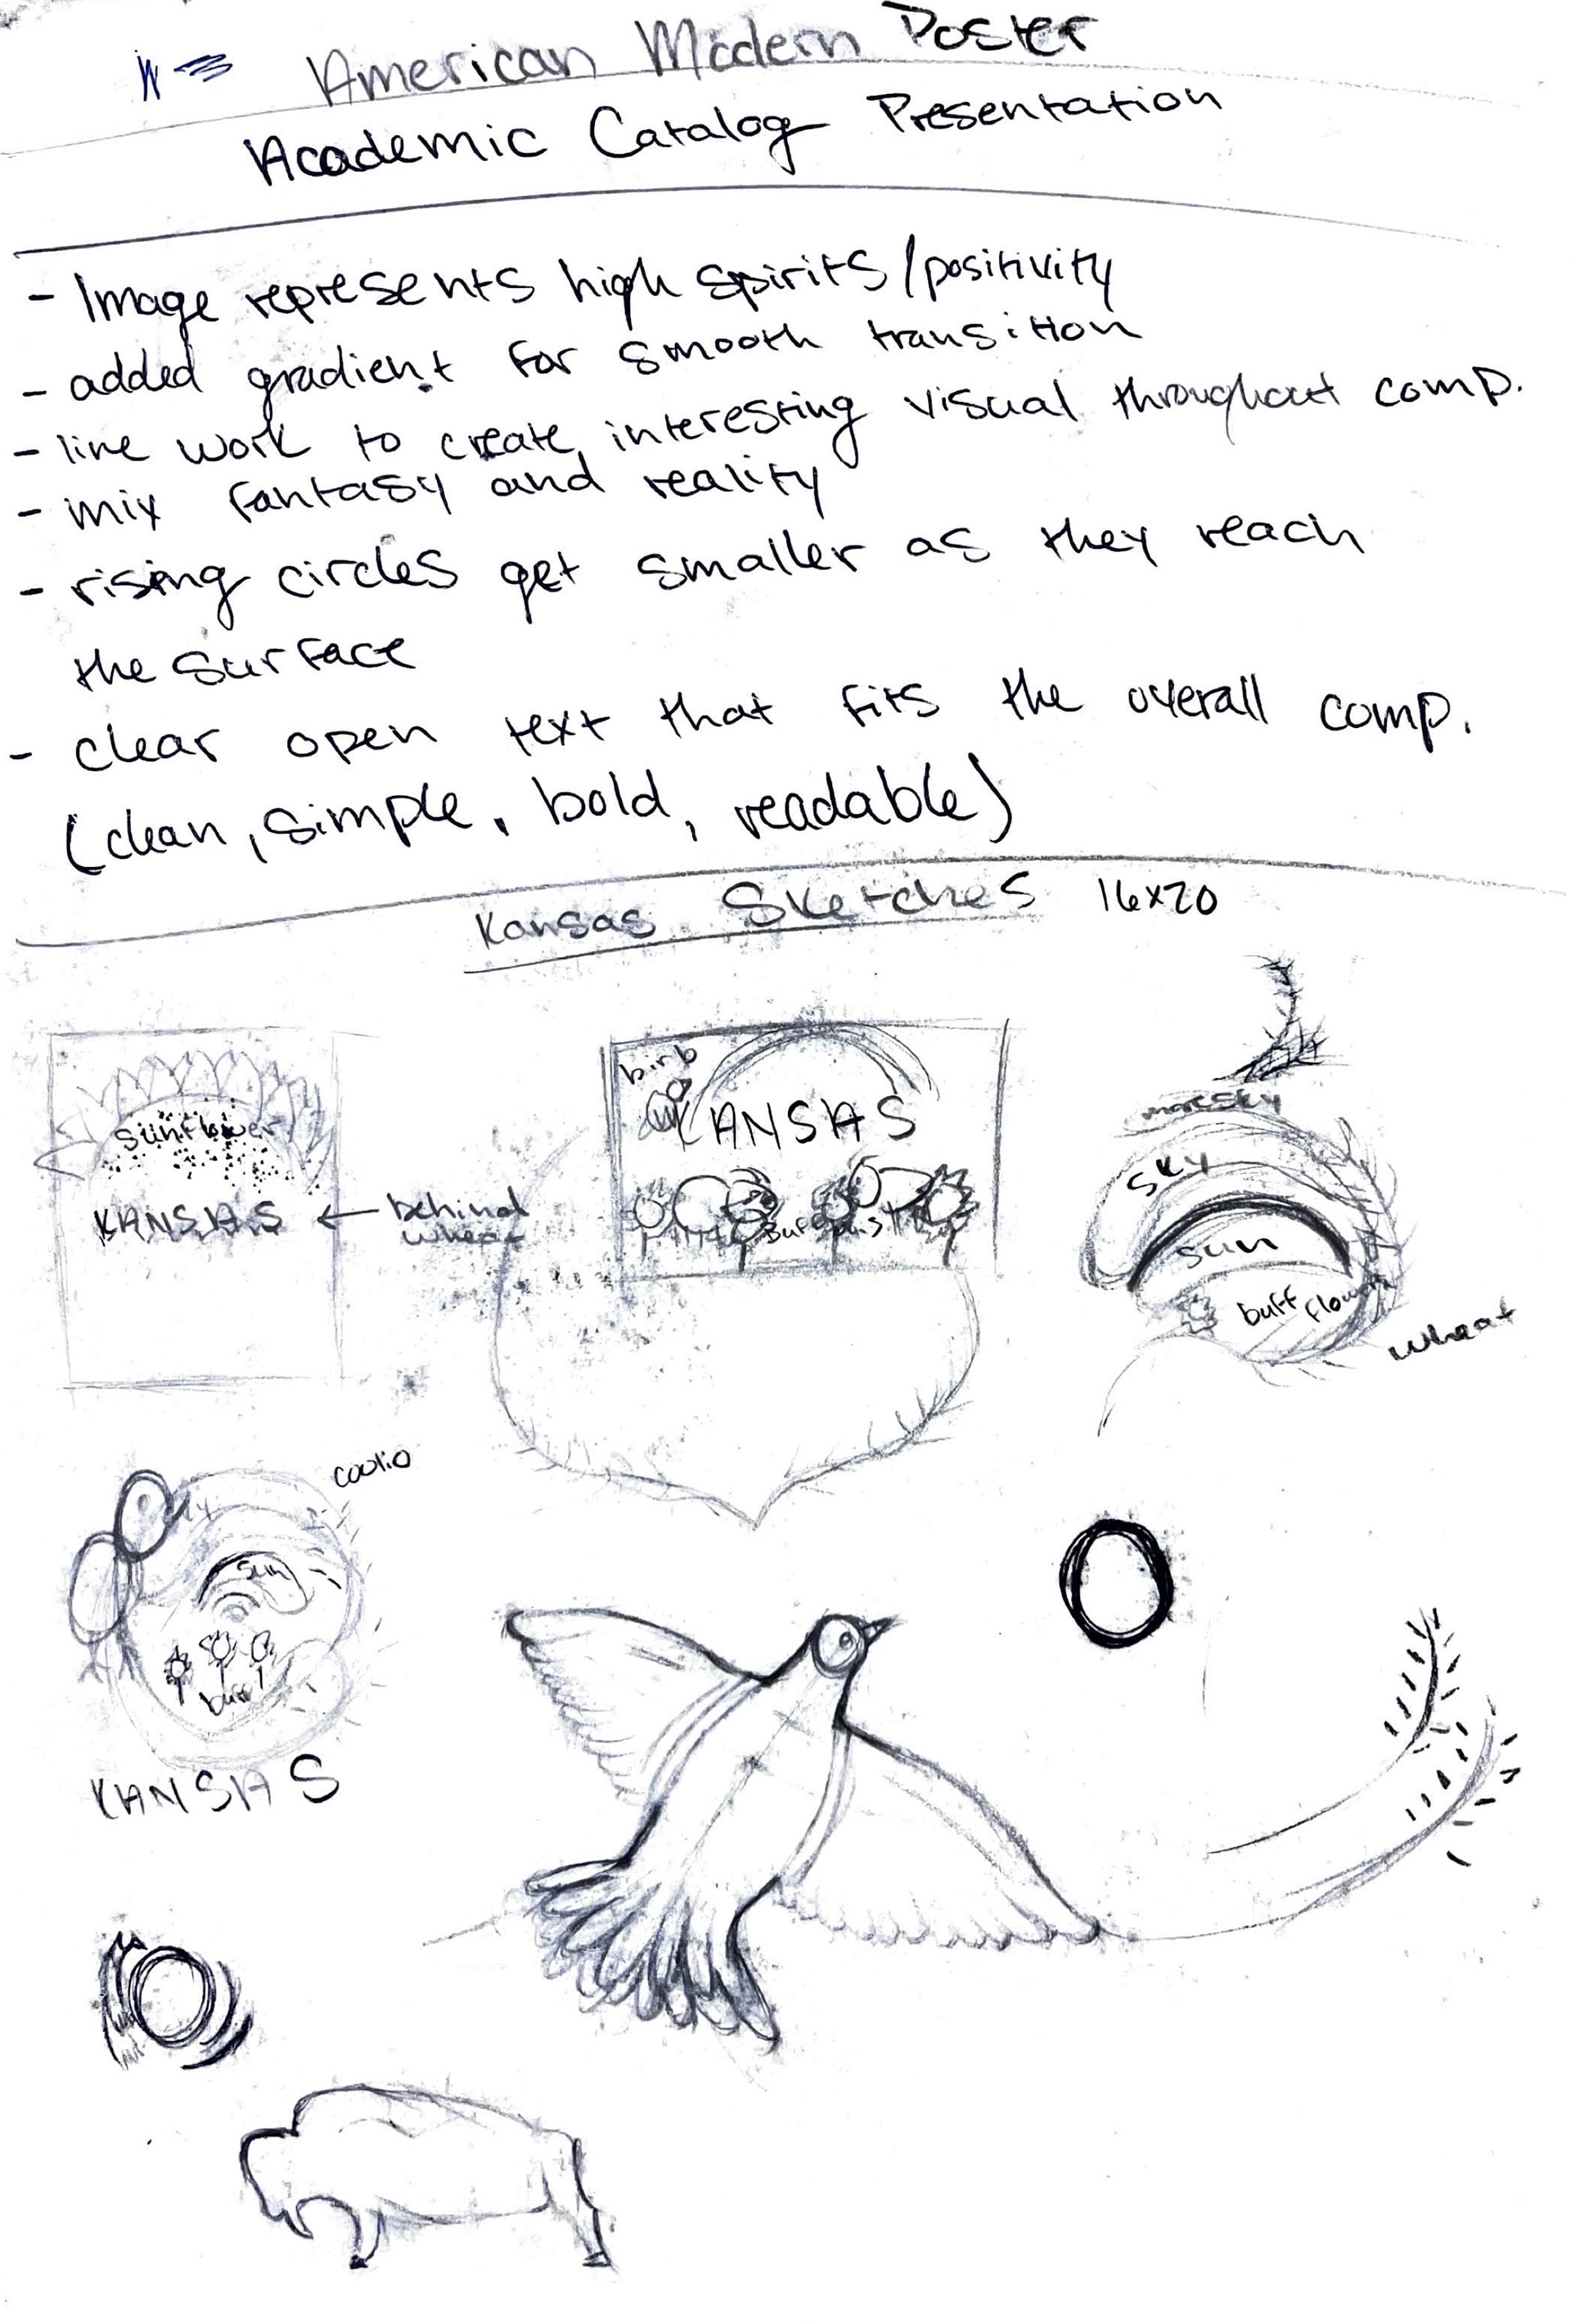 American Modern Poster
Academic Catalog Presentation
- Image represents high spirits/positivity
- added gradient for smooth transition
- line work to create interesting visual throughout comp.
- mix fantasy and reality
- rising circles get smaller as they reach
the surface
- clear open text that fits the overall comp.
(clean, simple, bold, readable)
Kansas Sketches 16x20
sunflower
KANSAS ← behind
wheat
birb
KANSAS
more sky
sky
sun
buff flower
wheat
coolio
sun
buff
KANSAS